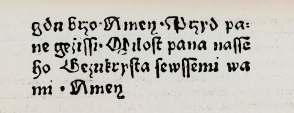 gdu brzo · Amen · Przyd pa=
ne gezissi · Milost pana nasse͏̈
ho Gezukrysta sewssemi wa
mi · Amen